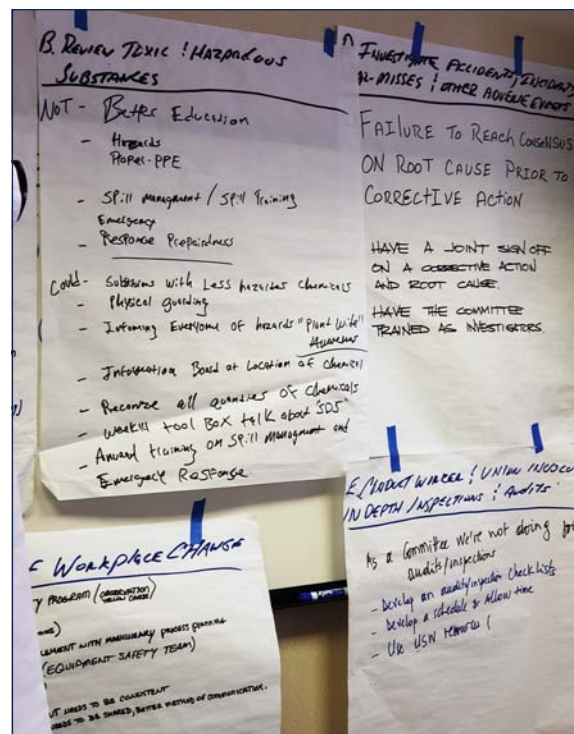 B. REVIEW TOXIC & HAZARDOUS
SUBSTANCES
NOT - Better Education
- Hazards
Proper-PPE
- Spill Managment / Spill Training
Emergency
- Response Prepairdness
Could - Substitutions with Less hazardes Chemicals
- Physical guarding
- Informing Everyone of hazards "Plant Wide"
Awareness
- Information Board at Location of Chemical
- Reconize all quantities of Chemicals
- Weekly tool Box talk about "SDS"
- Annual training on Spill Managment and
Emergency Response.
INVESTIGATE ACCIDENTS, INCIDENTS
-MISSES & OTHER ADVERSE EVENTS
FAILURE TO REACH CONSENSUS
ON ROOT CAUSE PRIOR TO
CORRECTIVE ACTION
HAVE A JOINT SIGN OFF
ON A CORRECTIVE ACTION
AND ROOT CAUSE.
HAVE THE COMMITTEE
TRAINED AS INVESTIGATORS.
WORKPLACE CHANGE
PROGRAM (OBSERVATION
YELLOW CARDS)
WITH MACHINERY PROCESS PLANNING
(EQUIPMENT SAFETY TEAM)
NEEDS TO BE CONSISTENT
TO BE SHARED, BETTER METHOD OF COMMUNICATION.
E. CONDUCT WORKER & UNION
IN DEPTH INSPECTIONS & AUDITS
As a Committee we're not doing
audits/inspections
- Develop an audits/inspection Check lists
- Develop a schedule & Allow time
- Use USW resources (